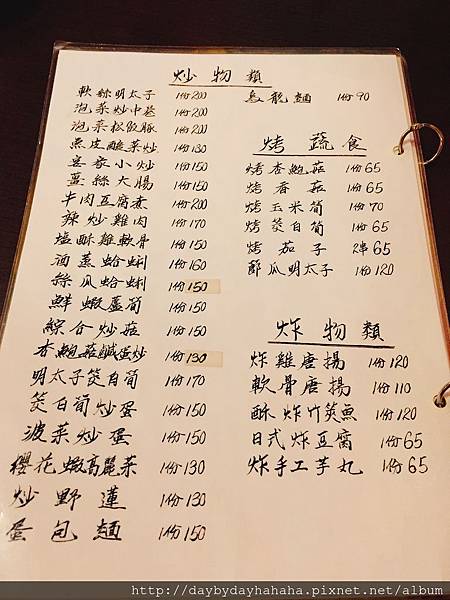 炒物類
軟絲明太子 1份200
泡菜炒中卷 1份200
泡菜松阪豚 1份200
魚皮酸菜炒 1份130
客家小炒 1份150
薑絲大腸 1份150
牛肉豆腐煮 1份200
辣炒雞肉 1份170
塩酥雞軟骨 1份150
酒蒸蛤蜊 1份160
絲瓜蛤蜊 1份150
鮮蝦蘆筍 1份150
綜合炒菇 1份150
杏鮑菇鹹蛋炒 1份130
明太子筊白筍 1份170
筊白筍炒蛋 1份150
菠菜炒蛋 1份150
櫻花蝦高麗菜 1份130
炒野蓮 1份130
蛋包麵 1份150
烏龍麵 1份90
烤蔬食
烤杏鮑菇 1份65
烤香菇 1份65
烤玉米筍 1份70
烤筊白筍 1份65
烤茄子 2串65
節瓜明太子 1份120
炸物類
炸雞唐揚 1份120
軟骨唐揚 1份110
酥炸竹筴魚 1份120
日式炸豆腐 1份65
炸手工芋丸 1份65
http://daybydayhahaha.pixnet.net/album